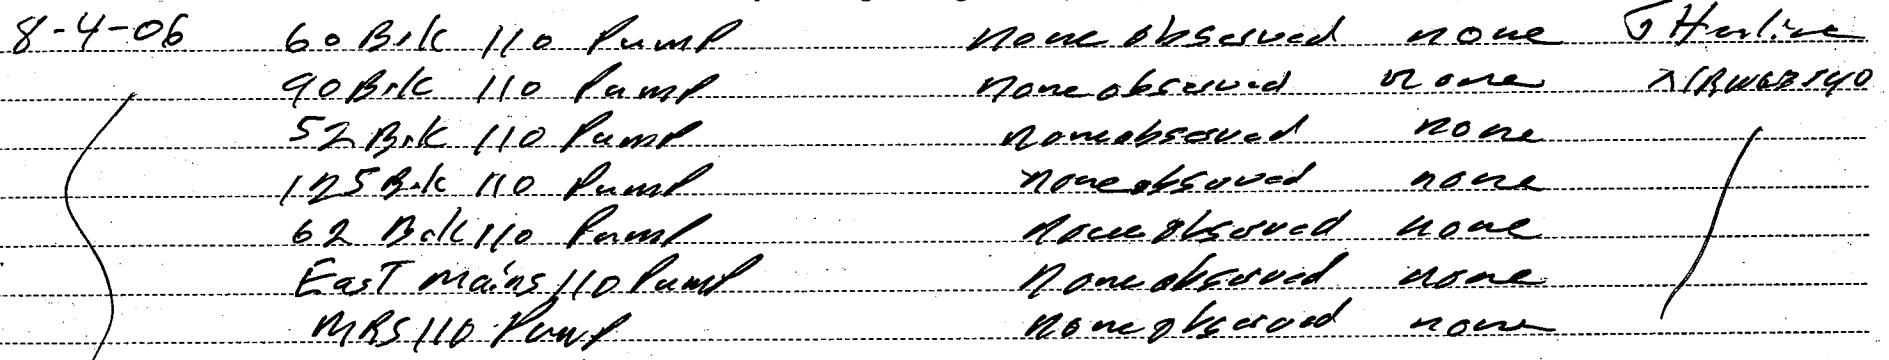 8-4-06 60 Brk 110 Pump none observed none
90 Brk 110 Pump none observed none
52 Brk 110 Pump none observed none
125 Brk 110 Pump none observed none
62 Brk 110 Pump none observed none
East mains 110 Pump none observed none
MRS 110 Pump none observed none